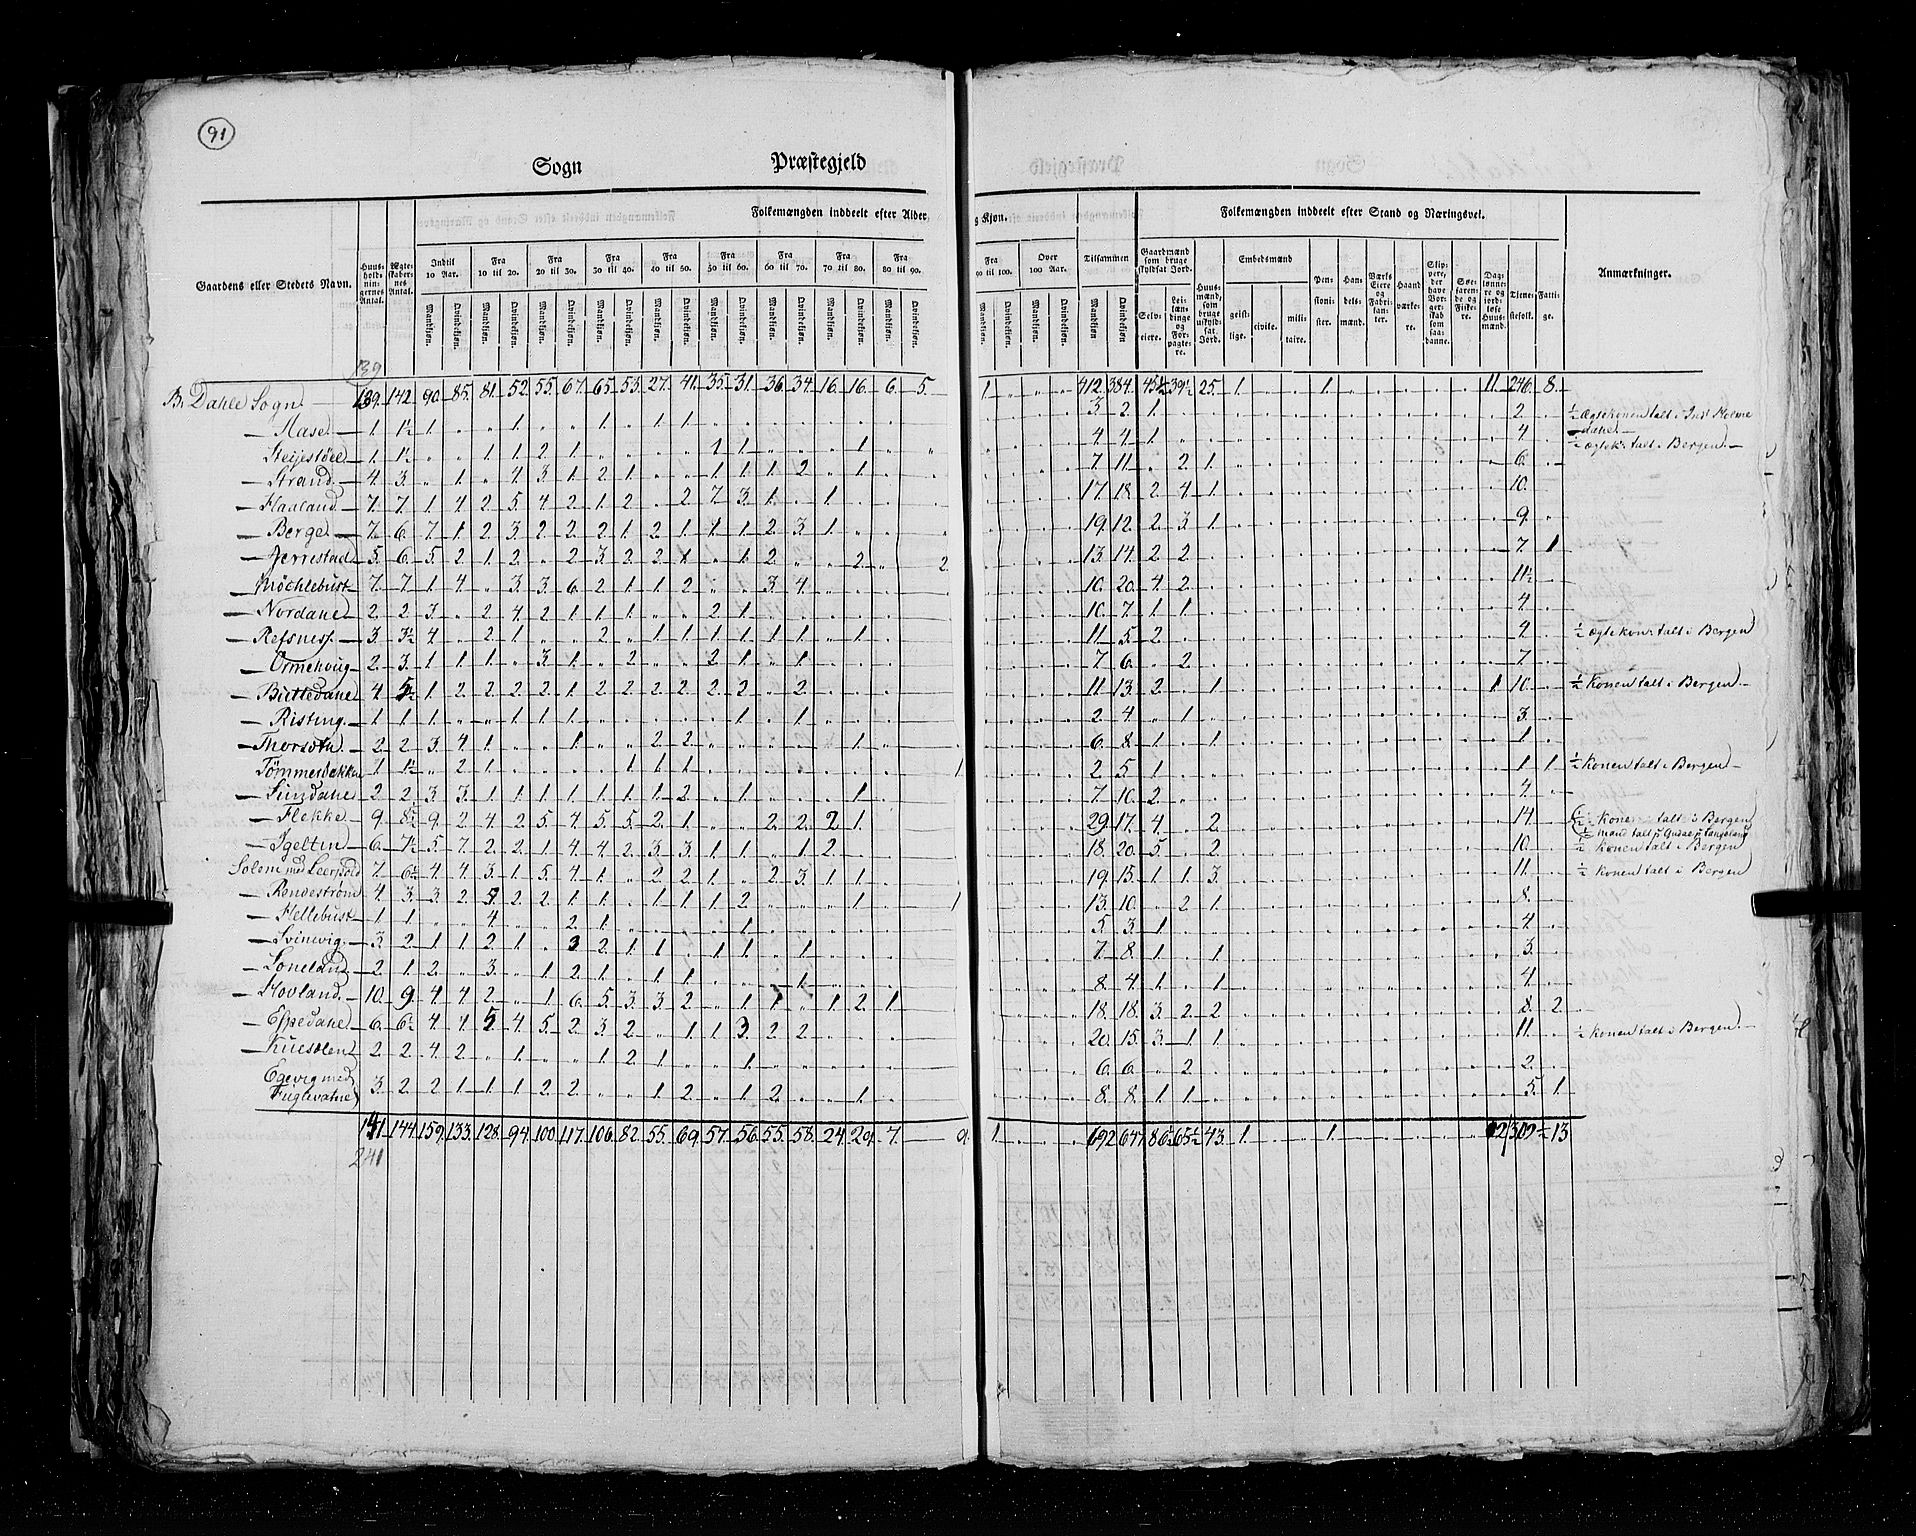 91
Sogn Præstegjeld
Folkemængden inddeelt efter Alder og Kjøn.
Folkemængden inddeelt efter Stand og Næringsvei.
Gaardens eller Stedets Navn.
Huusholdningernes Antal.
Ægteskabernes Antal.
Indtil 10 Aar.
Fra 10 til 20.
Fra 20 til 30.
Fra 30 til 40.
Fra 40 til 50.
Fra 50 til 60.
Fra 60 til 70.
Fra 70 til 80.
Fra 80 til 90.
Fra 90 til 100.
Over 100 Aar.
Tilsammen
Mandkjøn. Qvindekjøn.
Gaardmænd som bruge skyldsat Jord.
Selveiere.
Leilændinge og Forpagtere.
Huusmænd, som bruge uskyldsat Jord.
Embedsmænd
geistlige. civile. militaire.
Pensionister.
Handelsmænd.
Værks Eiere og Fabrikanter.
Haandværkere.
Slippere, der have Borgerskab som saadanne.
Søefarende og Fiskere.
Daglønnere og jordløse Huusmænd.
Tjenestefolk.
Fattige.
Anmærkninger.
139
B. Dahle Sogn 139. 142. 90. 85. 81. 52. 55. 67. 65. 53. 27. 41. 35. 31. 36. 34. 16. 16. 6. 5. 1. 412. 384. 45½ 39½ 25. 1. 1. 11. 246. 8.
— Aase — 1. 1½ 1. 1. 1. 1. 1. 3. 2. 1. 2.
Steijestøel — 1. 1½ 1. 1. 2. 1. 1. 1. 1. 4. 4. 1. 4. ½ Ægtek: talt i Bergen —
— Strand — 4. 3. 1. 4. 3. 1. 2. 1. 1. 1. 1. 2. 1. 7. 11. 2. 1. 6.
— Haaland 7. 7. 1. 4. 2. 5. 4. 2. 1. 2. 2. 7. 3. 1. 1. 17. 18. 2. 4. 1. 10.
— Berge — 7. 6. 7. 1. 2. 3. 2. 2. 2. 1. 2. 1. 1. 1. 2. 3. 1. 19. 12. 2. 3. 1. 9.
— Jerrestad 5. 6. 5. 2. 1. 2. 2. 3. 2. 2. 1. 1. 2. 2. 2. 13. 14. 2. 2. 7. 1
Møchlebust 7. 7. 1. 4. 3. 3. 6. 2. 1. 1. 2. 3. 4. 10. 20. 4. 2. 11½
— Nordane 2. 2. 3. 2. 4. 2. 1. 1. 1. 2. 1. 10. 7. 1. 1. 4.
— Refsnes — 3. 3½ 4. 2. 1. 2. 1. 1. 1. 1. 1. 1. 1. 11. 5. 2. 4. ½ Ægtekon: talt i Bergen
— Ormehoug 2. 3. 1. 1. 1. 3. 1. 2. 2. 1. 1. 7. 6. 2. 7.
— Bittedane 4. 5½ 1. 2. 2. 2. 2. 1. 2. 2. 2. 2. 2. 2. 2. 11. 13. 2. 1. 1 10. ½ Konen talt i Bergen —
— Risting — 1. 1. 1. 1. 1. 1. 1. 1. 2. 4. 1. 3.
— Thorsotn 2. 2. 3. 4. 1. 1. 2. 2. 1. 6. 8. 1. 1. 1.
1. 1½ 2. 1. 1. 1. 1. 1 2. 5. 1. 1. 1. ½ Konen talt i Bergen —
2. 2. 3. 3. 1. 1. 1. 1. 1. 1. 1. 2. 1. 1. 7. 10. 2. 4.
— Flekke 9. 8½ 9. 2. 4. 2. 5. 4. 5. 5. 2. 1. 2. 2. 2 1. 29. 17. 4. 2. 14. ½ Konen talt i Bergen
— Igeltin 6. 7½ 5. 7. 2. 2. 1. 4. 4. 2. 3. 3. 1. 1. 1. 2. 18. 20. 5. 2. 10. ½ Konen talt i Bergen
7. 6½ 4. 4. 3. 1. 5. 4. 1. 2. 2. 1. 2. 3. 1. 1. 19. 15. 1. 1. 3. 11. ½ Konen talt i Bergen
— Rendeström 4. 3. 3. 2. 2. 2. 1. 1. 1. 1. 1. 2. 1. 1 13. 10. 2. 1. 8.
— Hellebust 1. 1. 4. 2. 1. 1. 5. 3. 1. 4.
— Svinevig 3. 2. 1. 1. 2. 1. 3 2. 1. 1. 1. 1. 1. 7. 8. 1. 1. 3.
— Loneland 2. 1. 2. 3. 1. 2. 1. 1. 1. 1. 8. 4. 1. 1. 4.
— Hovland 10. 9. 4. 4. 2. 1. 6. 5. 3. 3. 2. 1. 1. 1. 2. 1. 18. 18. 3. 2. 2. 8. 2.
— Espedane 6. 6½ 4. 4. 5 4. 5. 2. 3. 2. 1. 1. 3. 2. 2. 20. 15. 3. 1. 1. 11. ½ Konen talt i Bergen. —
2. 2. 4. 2. 1. 1. 2. 1. 1. 6. 6. 2. 2.
Egevig med
Fuglevatne 3. 2. 2. 1. 1. 1. 2. 2. 1. 2. 1. 2. 1. 8. 8. 1. 1. 5. 1.
144. 159. 133. 128. 94. 100. 117. 106. 82. 55. 69. 57. 56. 55. 58. 24. 29. 7. 9. 1. 692. 647. 86. 65½ 43. 1. 1. 12. 13
241